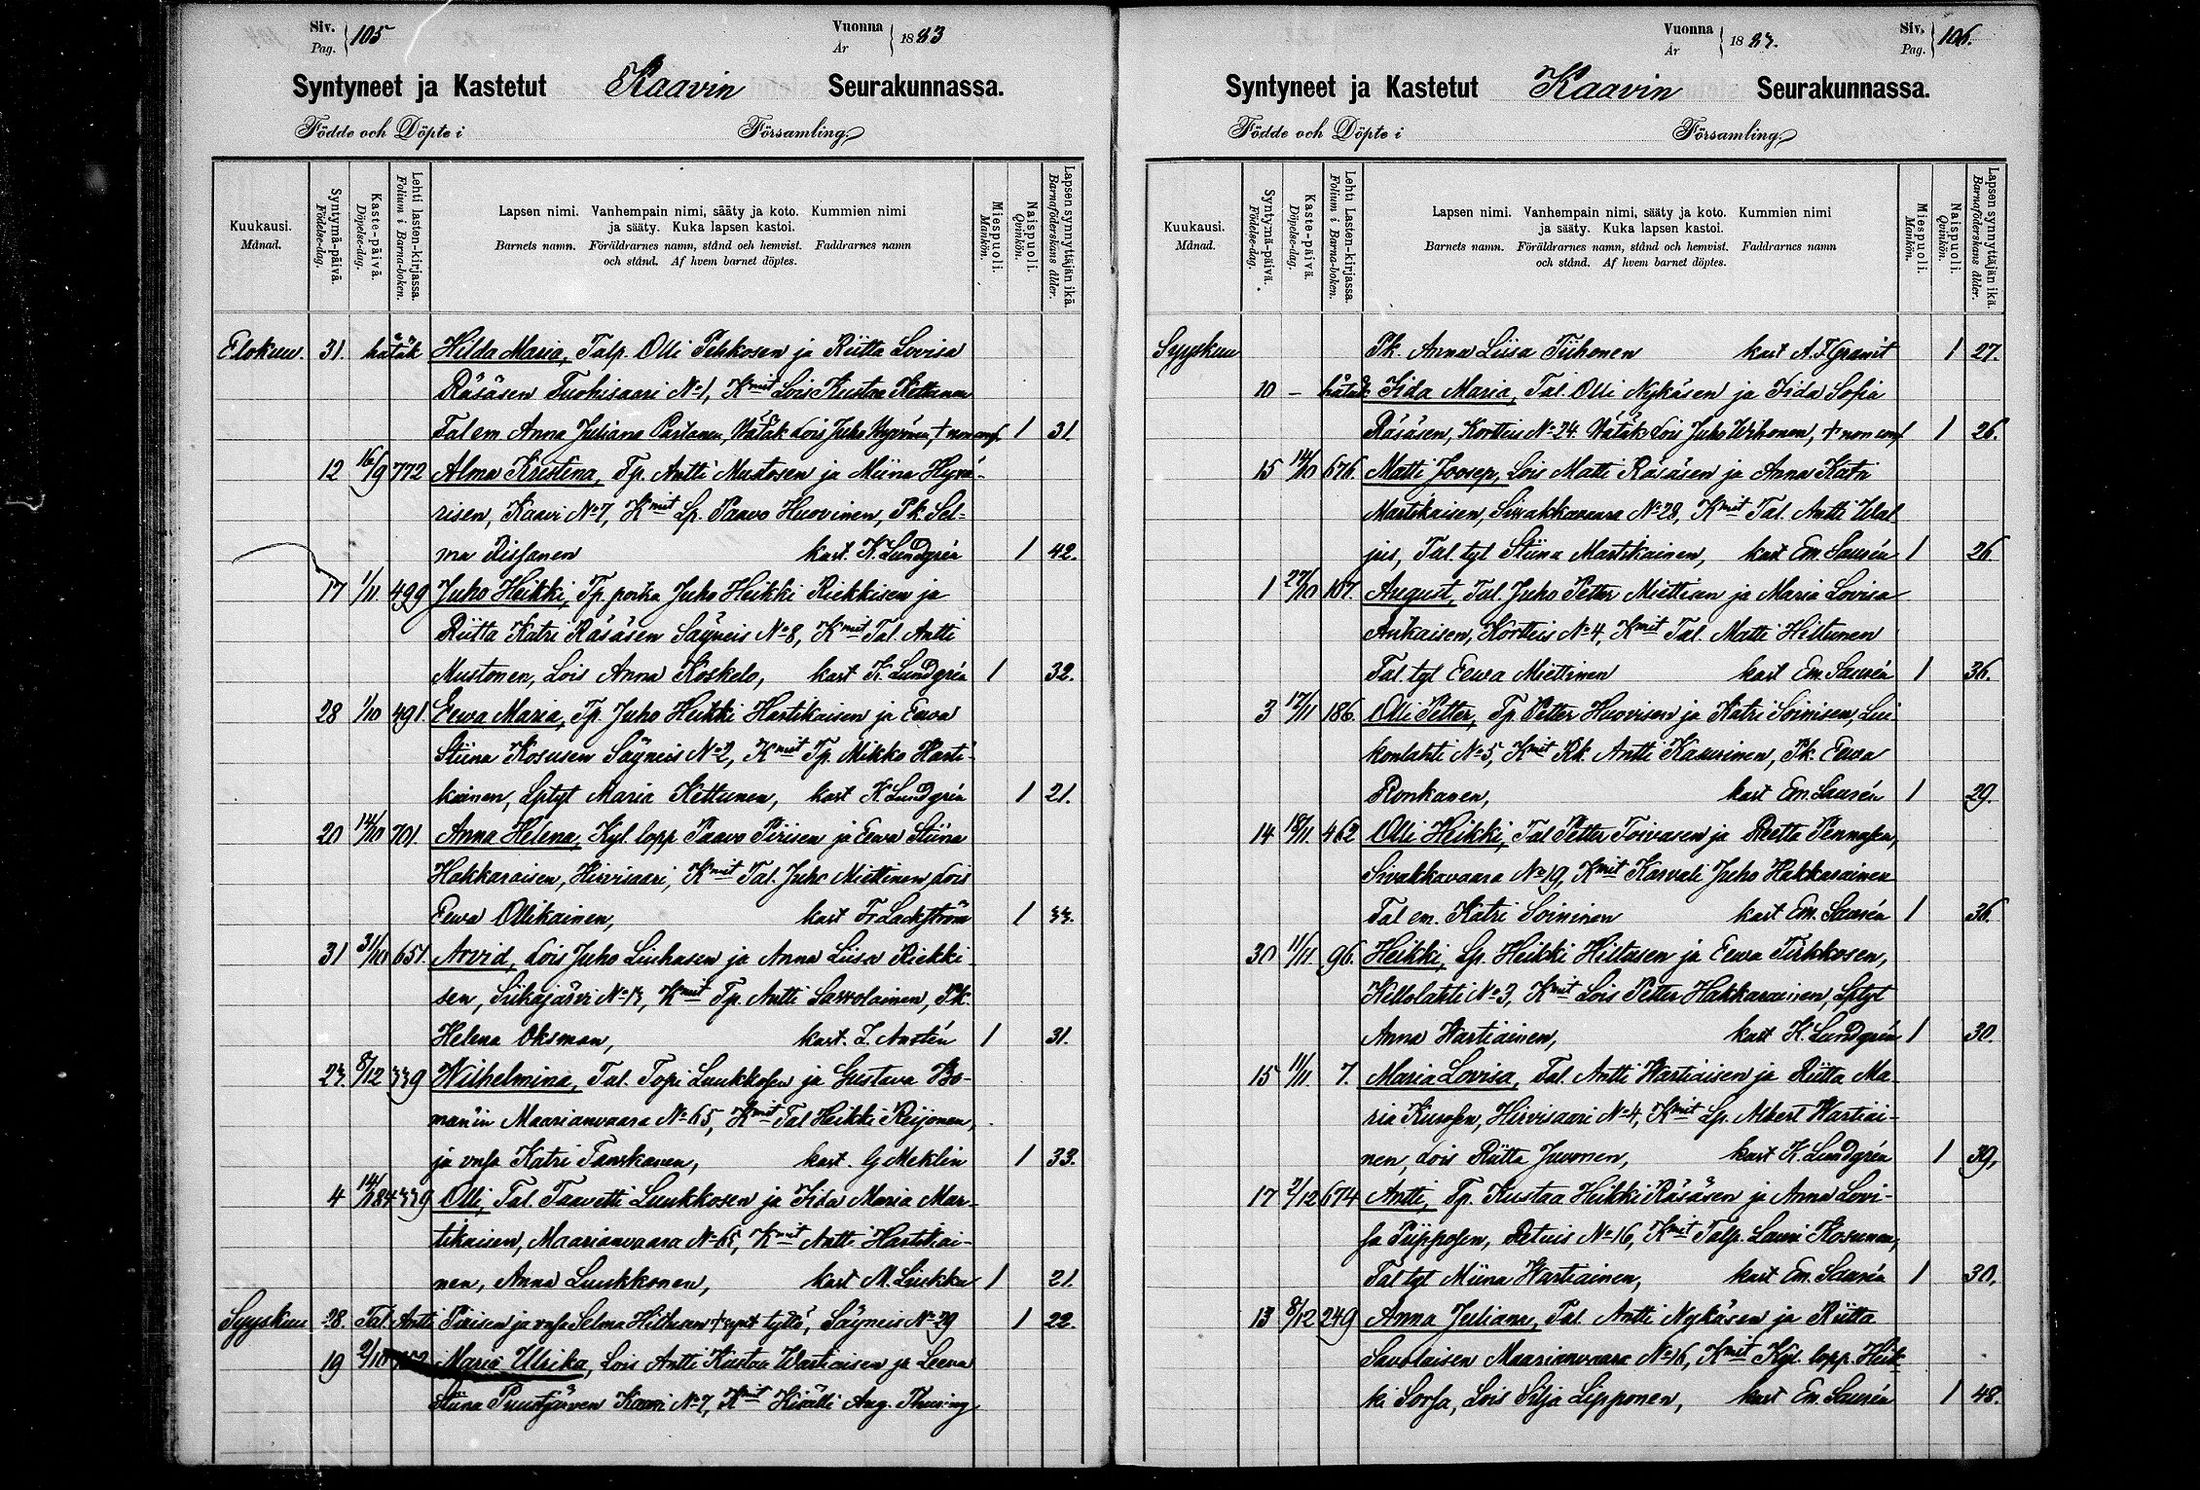 Siv. Pag. 105
Vuonna År 1883
Syntyneet ja Kastetut Kaavin Seurakunnassa.
Födde och Döpte i Församling.
Kuukausi. Månad.
Syntymä-päivä. Födelse-dag.
Kaste-päivä. Döpelse-dag.
Lehti lasten-kirjassa. Folium i Barna-boken.
Lapsen nimi. Vanhempain nimi, sääty ja koto. Kummien nimi
ja sääty. Kuka lapsen kastoi.
Barnets namn. Föräldrarnes namn, stånd och hemvist. Faddrarnes namn
och stånd. Af hvem barnet döptes.
Miespuoli. Mankön.
Naispuoli. Qvinkön.
Lapsen synnyttäjän ikä. Barnaföderskans ålder.
Elokuu. 31. hätäk Hilda Maria, Talp. Olli Pekkosen ja Riitta Lovisa
Räsäsen Tuohisaari No 1, Kmit Lois Kustaa Kettunen
Tal em Anna Juliana Partanen, Hätäk Lois Juho Hyvärinen, + non conf. 1 31.
12 16/9 772 Alma Kristina, Tp. Antti Mustosen ja Miina Hyvä-
risen, Kaavi No 7, Kmit Lp. Paavo Huovinen, Pk. Sel-
ma Rissanen kast. K. Lundgrén 1 42.
17 1/11 499 Juho Heikki, Tp. poika Juho Heikki Riekkisen ja
Riitta Katri Räsäsen Säyneis No 8, Kmit Tal. Antti
Mustonen, Lois Anna Koskelo, kast K. Lundgrén 1 32.
28 1/10 491. Eewa Maria, Tp. Juho Heikki Hartikaisen ja Eewa
Stiina Kosusen Säyneis No 2, Kmit Tp. Mikko Harti-
kainen, Lptyt Maria Kettunen, kast K. Lundgrén 1 21.
20 14/10 701. Anna Helena, Kyl. lopp Paavo Pirisen ja Eewa Stiina
Hakkaraisen, Hirvisaari, Kmit Tal. Juho Miettinen Lois
Eewa Ollikainen, kast Fr. Lackström 1 33.
31 31/10 651. Arvid, Lois Juho Liuhasen ja Anna Liisa Riekki-
sen, Siikajärvi No 13, Kmit Tp. Antti Savolainen, Pk.
Helena Oksman, kast. I. Austén 1 31.
23. 8/12 339 Wilhelmina, Tal. Topi Luukkosen ja Gustava Bo-
man'in Maarianvaara No 65, Kmit Tal Heikki Reijonen,
ja vmsa Katri Tanskanen, kast. G Meklin 1 33.
4 14/1 84 339 Olli, Tal. Taavetti Luukkosen ja Iida Maria Mar-
tikaisen, Maarianvaara No 65, Kmit Antti Hartikai-
nen, Anna Luukkonen, kast M. Liukku 1 21.
Syyskuu 28. Tal. Antti Pirisen ja vmsa Selma Hiltusen + synt tyttö, Säyneis No 29 1 22.
19 2/10 Maria Ulrika, Lois Antti Kustaa Wartiaisen ja Leena
Stiina Puustjärven Kaavi No 7, Kmit Kivälli Aug. Thuring
Vuonna År 1883.
Siv. Pag. 106.
Syntyneet ja Kastetut Kaavin Seurakunnassa.
Födde och Döpte i Församling.
Kuukausi. Månad.
Syntymä-päivä. Födelse-dag.
Kaste-päivä. Döpelse-dag.
Lehti Lasten-kirjassa. Folium i Barna-boken.
Lapsen nimi. Vanhempain nimi, sääty ja koto. Kummien nimi
ja sääty. Kuka lapsen kastoi.
Barnets namn. Föräldrarnes namn, stånd och hemvist. Faddrarnes namn
och stånd. Af hvem barnet döptes.
Miespuoli. Mankön.
Naispuoli. Qvinkön.
Lapsen synnyttäjän ikä. Barnaföderskans ålder.
Syyskuu Pk. Anna Liisa Tiihonen kast A. F Granit 1 27.
10 – hätäk Iida Maria, Tal. Olli Nykäsen ja Iida Sofia
Räsäsen, Kortteis No 24. Hätäk Lois Juho Urhonen, + non conf 1 26.
15 14/10 676. Matti Joosep, Lois Matti Räsäsen ja Anna Katri
Martikaisen, Sivakkavaara No 28, Kmit Tal. Antti Wal-
jus, Tal. tyt Stiina Martikainen, kast Em. Saurén 1 26
1 27/10 107. August, Tal. Juho Petter Miettisen ja Maria Lovisa
Autkaisen, Kortteis No 4, Kmit Tal. Matti Hiltunen
Tal. tyt Eewa Miettinen kast Em. Saurén 1 36.
3 12/11 186. Olli Petter, Tp Petter Huovisen ja Katri Soinisen, Lui-
konlahti No 5, Kmit Rk. Antti Kasurinen, Pk. Eewa
Ronkanen, kast Em. Saurén 1 29.
14 18/11. 462 Olli Heikki, Tal Petter Toivasen ja Reetta Pennasen,
Sivakkavaara No 19, Kmit Kasvati Juho Hakkarainen
Tal em. Katri Soininen kast Em. Saurén 1 36
30 11/11 96. Heikki, Lp. Heikki Hiltusen ja Eewa Pirkkosen,
Kellolahti No 3, Kmit Lois Petter Hakkarainen, Lptyt
Anna Wartiainen, kast K. Lundgrén 1 30.
15 11/11 7. Maria Lovisa, Tal. Antti Wartiaisen ja Riitta Ma-
ria Kurosen, Hirvisaari No 4, Kmit Lp. Albert Wartiai-
nen, Lois Riitta Juvonen, kast K. Lundgrén 1 39,
17 2/12 674 Antti, Tp. Kustaa Heikki Räsäsen ja Anna Lovi-
sa Piipposen, Retuis No 16, Kmit Talp. Lauri Kosunen,
Tal tyt Miina Wartiainen, kast Em. Saurén 1 30.
13 8/12 249 Anna Juliana, Tal. Antti Nykäsen ja Riitta
Savolaisen Maarianvaara No 16, Kmit Kyl. lopp. Heik-
ki Sorsa, Lois Silja Lipponen, kast Em. Saurén 1 48.